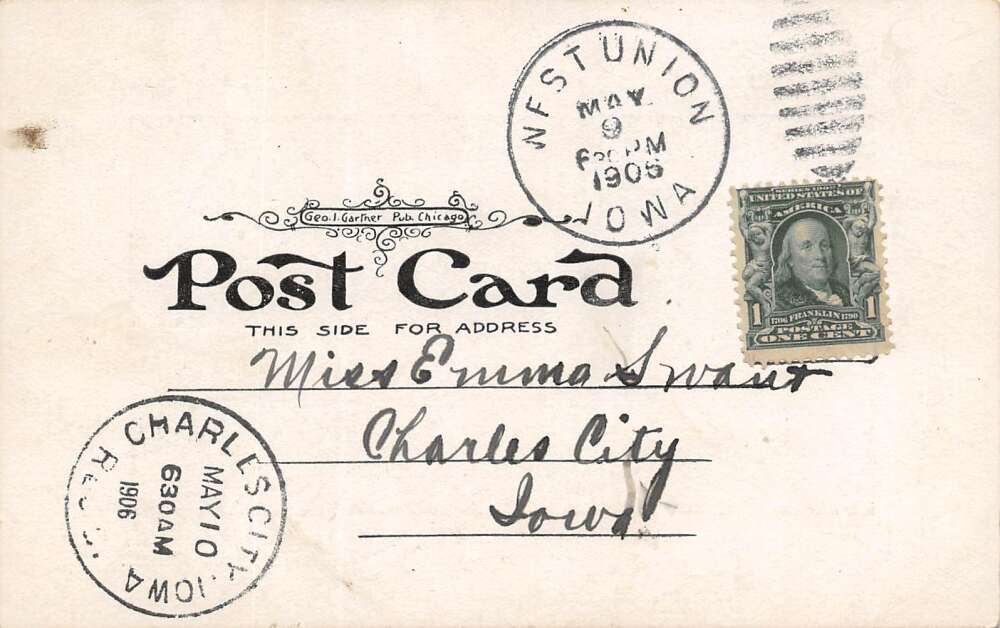 WEST UNION
MAY
9
PM
1906
IOWA
SERIES 1902
UNITED STATES OF
AMERICA
1 1
1706 FRANKLIN 1790
POSTAGE
ONE CENT
Geo. J. Gartner Pub. Chicago
Post Card
THIS SIDE FOR ADDRESS
Miss Emma Swant
Charles City
Iowa
CHARLES CITY, IOWA
MAY 10
630AM
1906
REC'D.